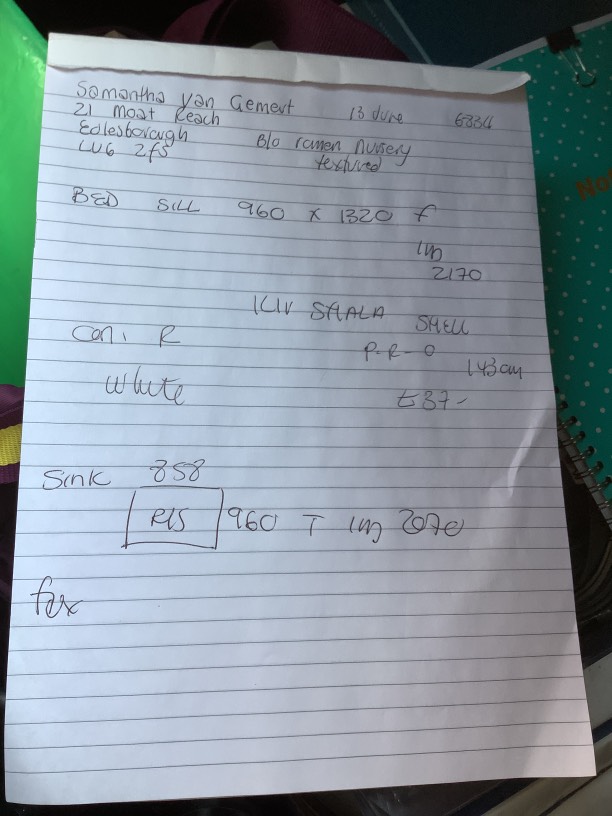 Samantha Van Gemert 13 June 6334
21 Moat Reach
Edlesborough Blo ramen Nursery
LU6 2fs textured
BED SILL 960 x 1320 f
2170
SHALA SHELL
Con. R P-R-O
143cm
white £37-
Sink 858
960 T 2070
fox
No